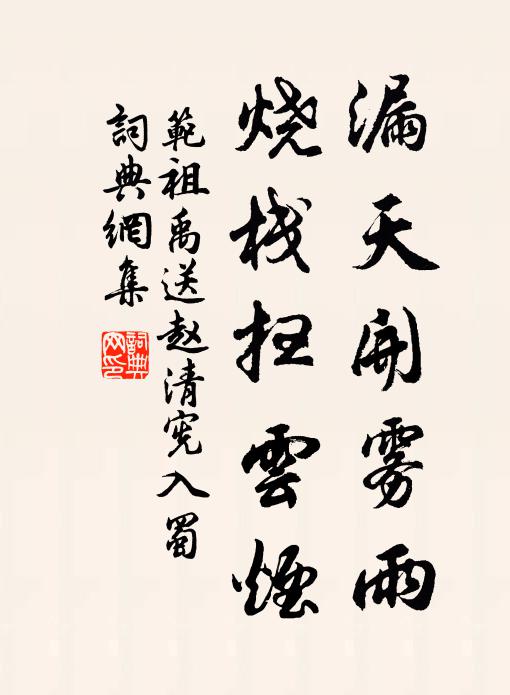 漏天開雾雨
烧栈扫雲煙
範祖禹送赵清宪入蜀
詞典網集